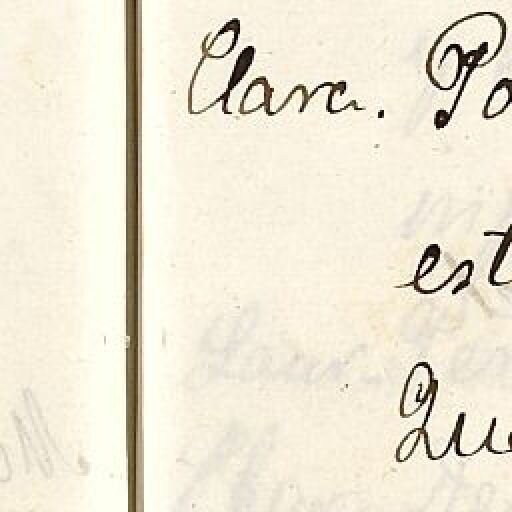 Clara. Po
est
Que